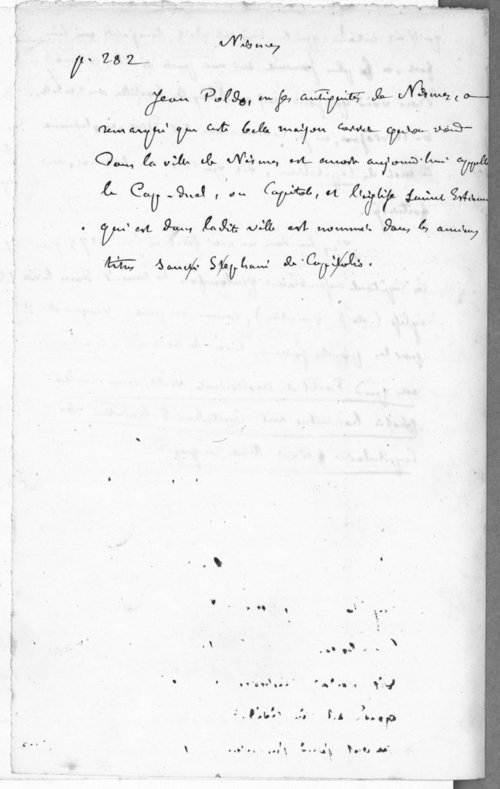 Nismes
p. 282
Jean Poldo, en ses antiquités de Nismes, a
remarqué que cete belle maison carrée qu'on void
dans la ville de Nismes est encore aujourd'hui appellé
le Cap-duel, ou Capitole, et l'église Saint Estienne
qui est dans ladite ville est nommée dans les anciens
titres Sancti Stephani de Capitolio.